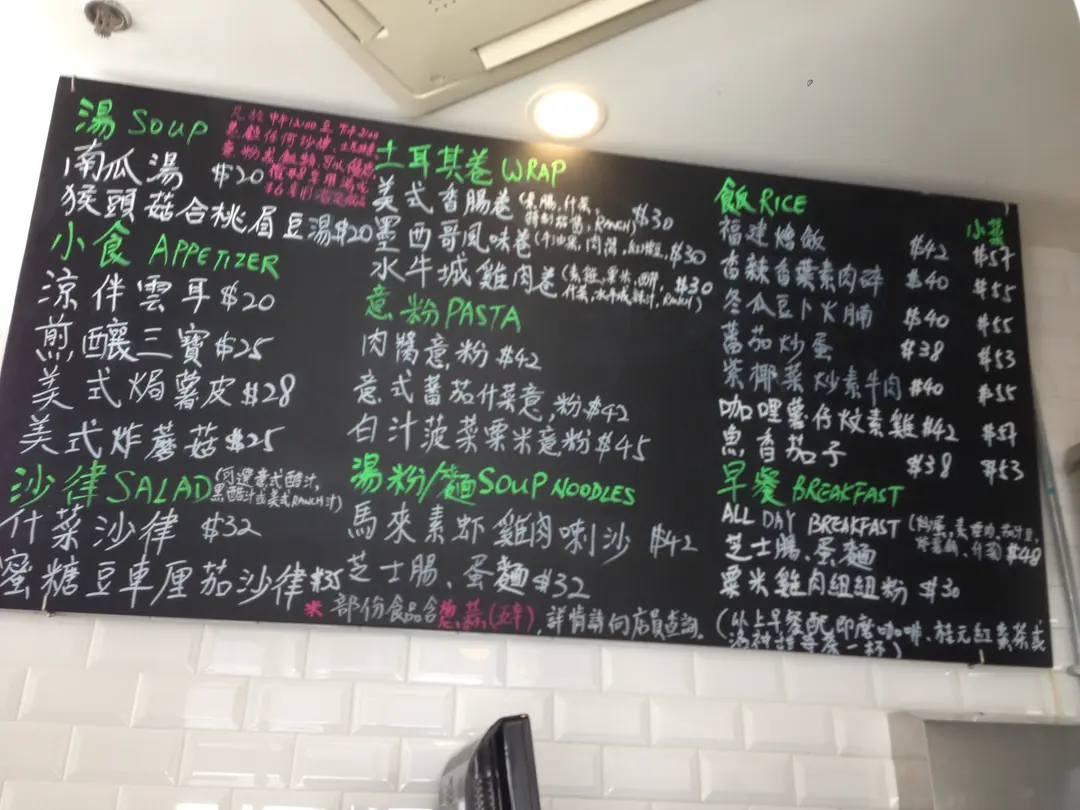 湯 SOUP
南瓜湯 $20
猴頭菇合桃眉豆湯$20
小食 APPETIZER
涼伴雲耳$20
煎釀三寶$25
美式焗薯皮$28
美式炸蘑菇$25
沙律SALAD(可選意式醋汁,
黑醋汁或美式RANCH汁)
什菜沙律 $32
蜜糖豆車厘茄沙律$35
土耳其卷 WRAP
美式香腸卷 $30
墨西哥風味卷 $30
水牛城雞肉卷 $30
意粉PASTA
肉醬意粉 $42
意式蕃茄什菜意粉$42
白汁菠菜粟米意粉$45
湯粉/麵SOUP NOODLES
馬來素虾雞肉喇沙 $42
芝士腸、蛋麵$32
※部份食品含 蒜,(五辛),詳情請向店員查詢。
飯RICE 小菜
福建燴飯 $42 $57
香辣香葉素肉碎 $40 $55
冬瓜豆卜火腩 $40 $55
蕃茄炒蛋 $38 $53
紫椰菜炒素牛肉 $40 $55
咖哩薯仔炆素雞$42 $57
魚香茄子 $38 $53
早餐 BREAKFAST
ALL DAY BREAKFAST $48
芝士腸、蛋麵
粟米雞肉組組粉 $30
(以上早餐配即磨咖啡、桂元紅棗茶或
洛神 等茶一杯)